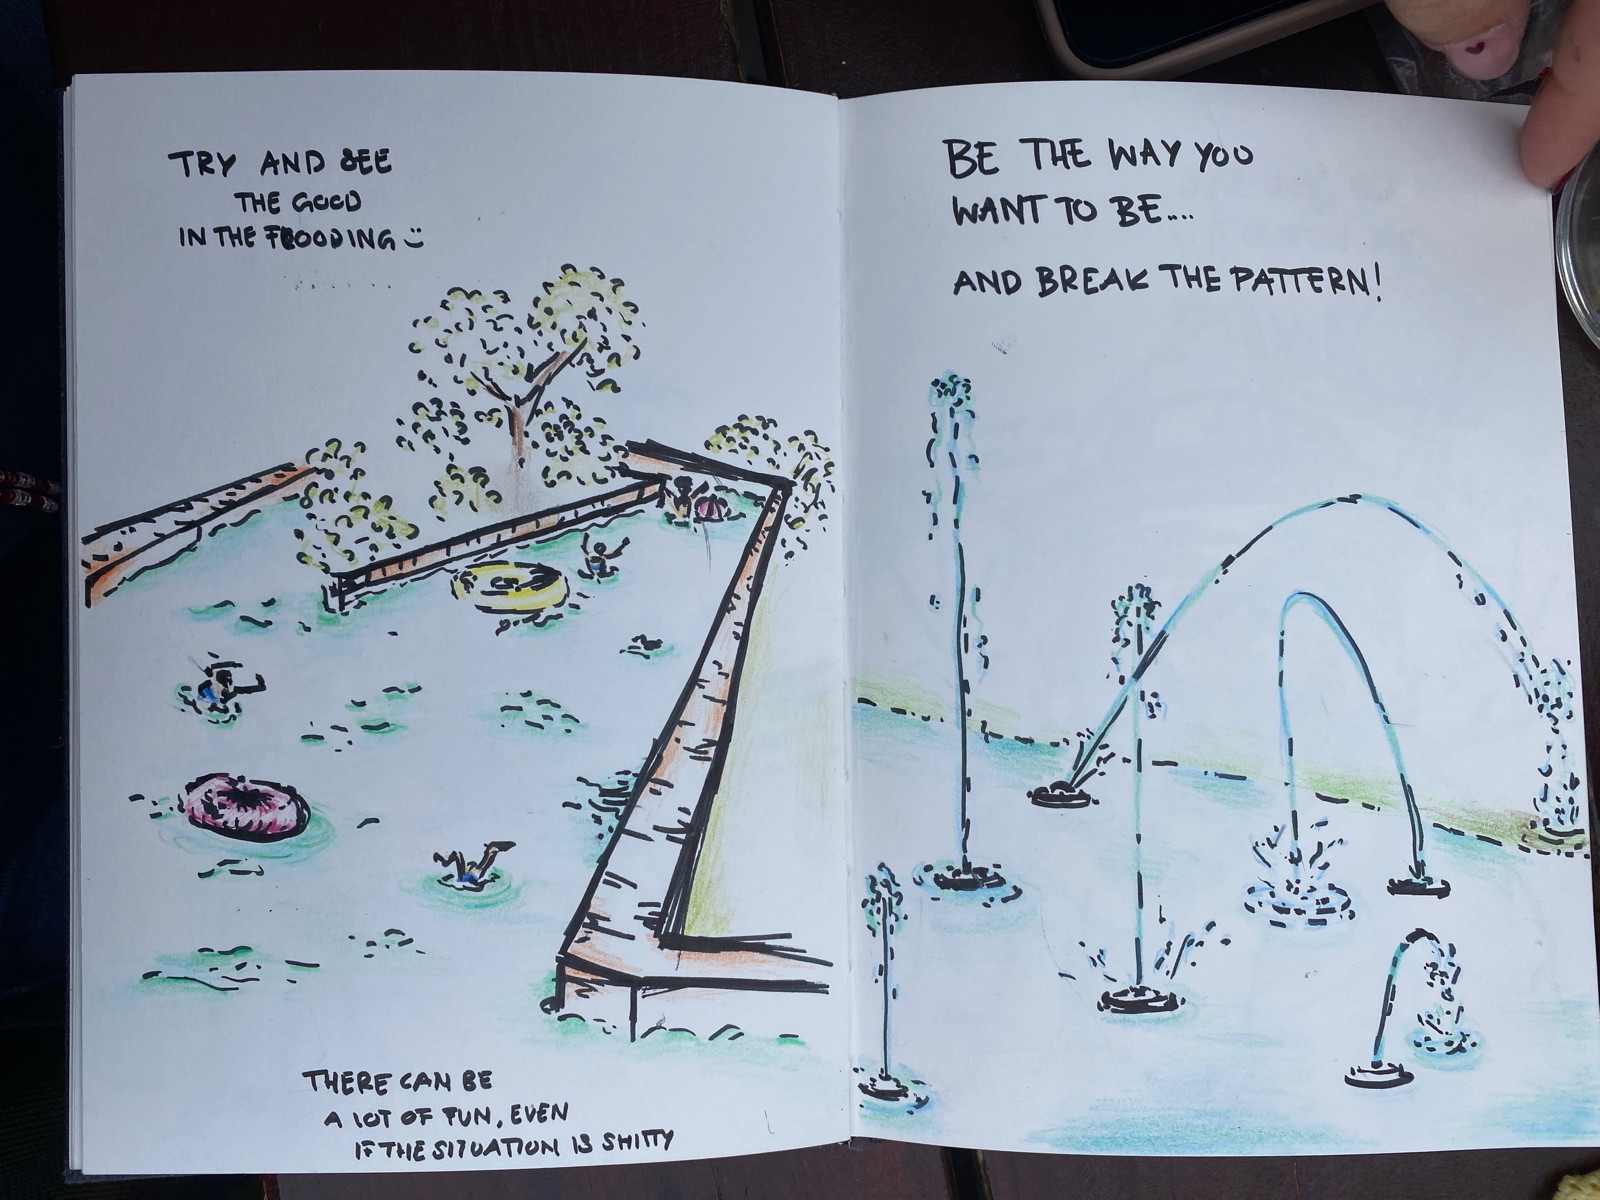 TRY AND SEE
THE GOOD
IN THE FLOODING :)
THERE CAN BE
A LOT OF FUN, EVEN
IF THE SITUATION IS SHITTY
BE THE WAY YOU
WANT TO BE....
AND BREAK THE PATTERN!